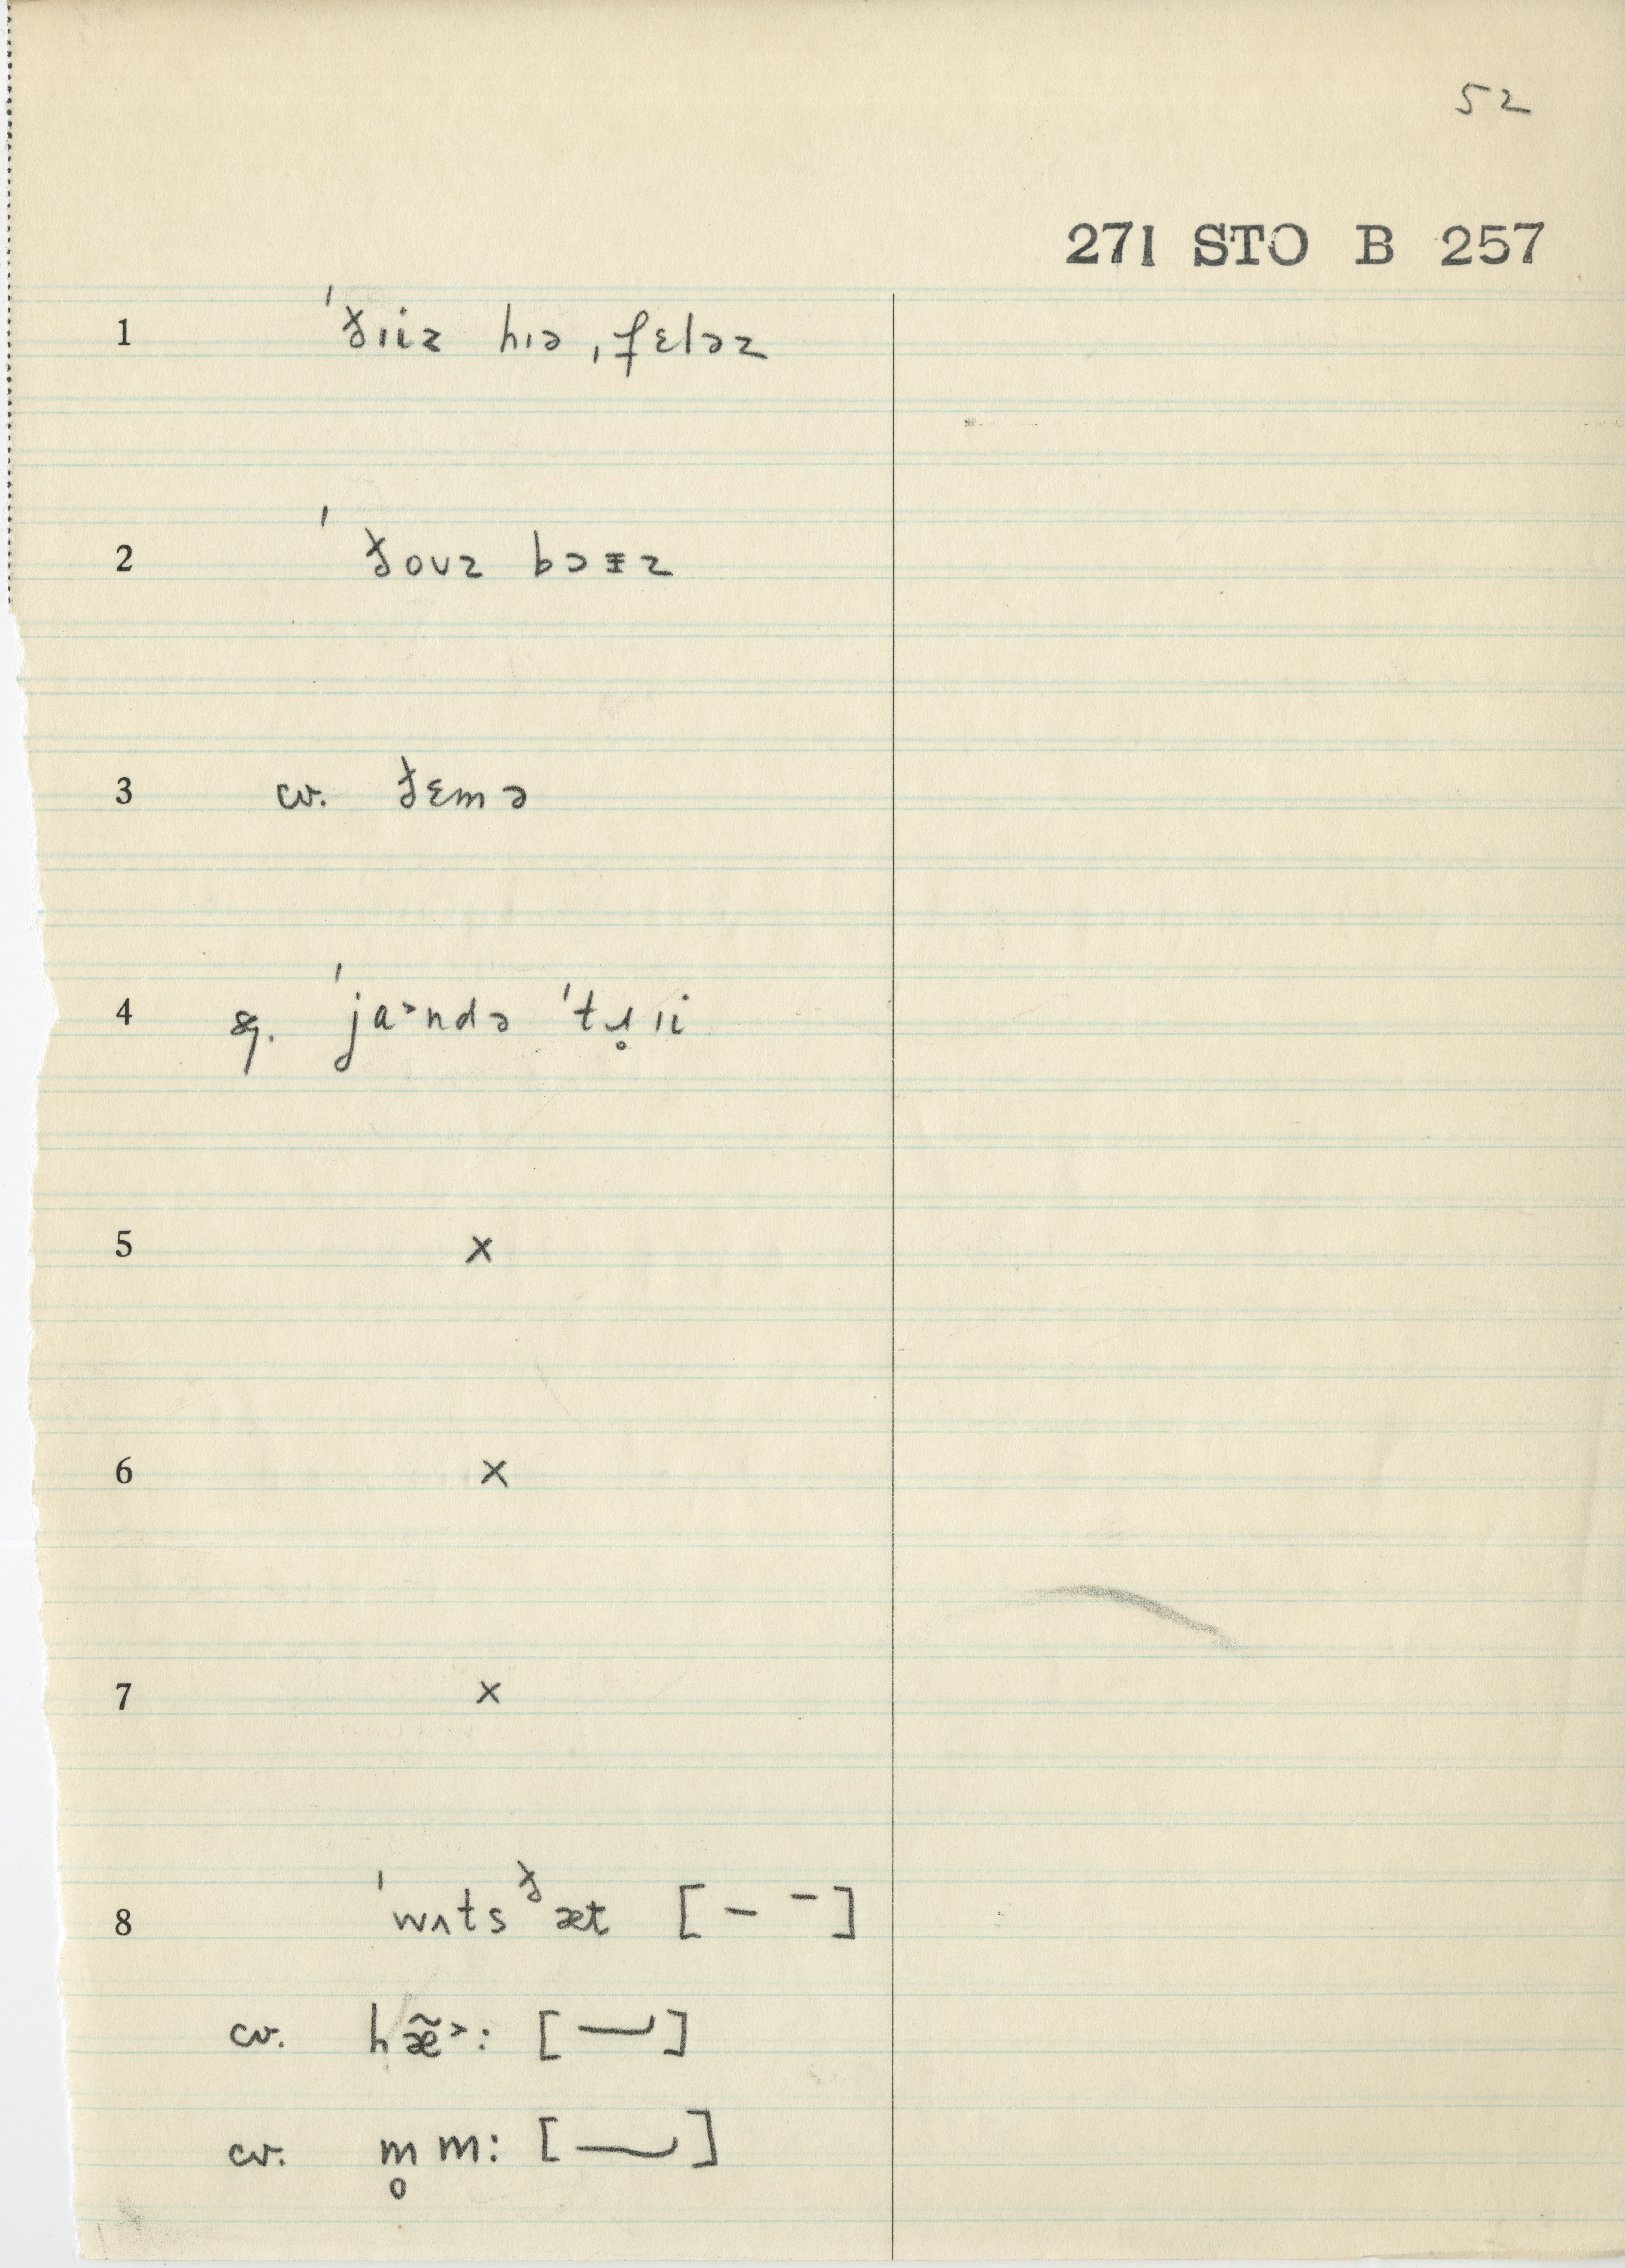 52
271 STO B 257
1 ˈðɪiz hɪə ˌfɛləz
2 ˈðoʊz bɔɪz
3 cv. ðɛmə
4 sg. ˈja˃ndə ˈtɹ̥ɪi
5 ×
6 ×
7 ×
8 ˈwʌtsᶞæt [– ¯]
cv. hæ̃˃:
cv. m̥m: